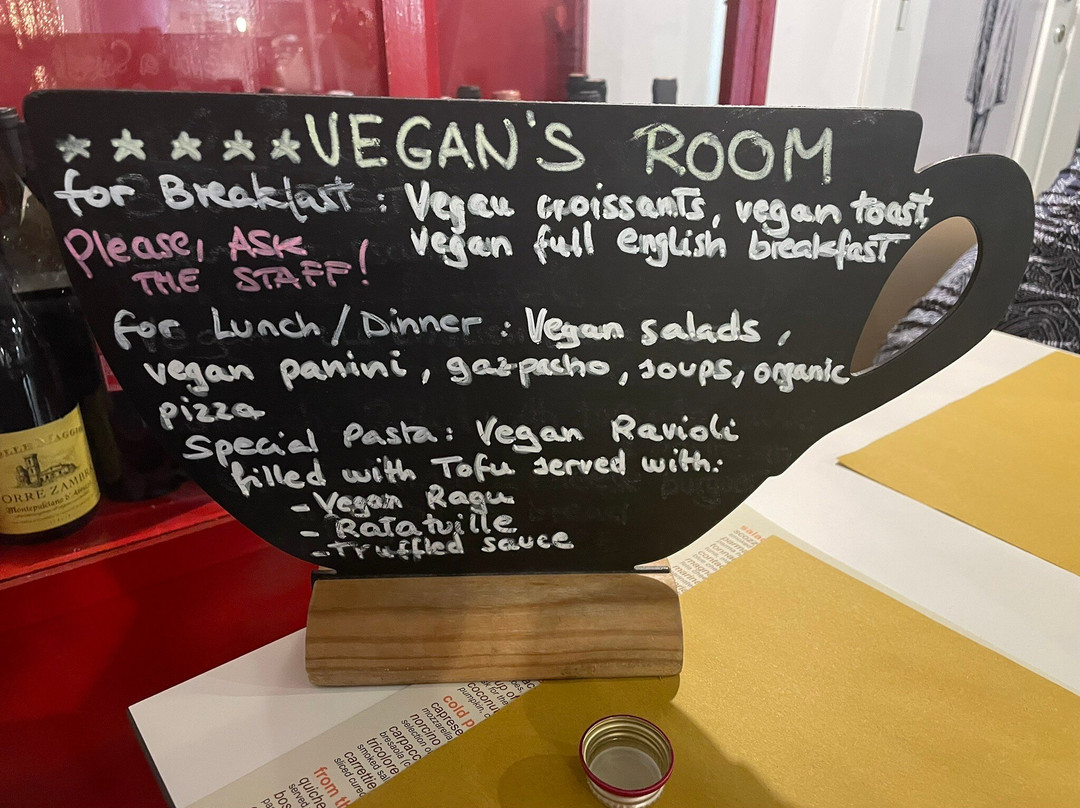 ★★★★★ VEGAN'S ROOM
for Breakfast : Vegan croissants, vegan toast,
Please, ASK
THE STAFF!
Vegan full english breakfast
for Lunch / Dinner : Vegan salads ,
vegan panini , gazpacho , soups, organic
pizza
Special Pasta: Vegan Ravioli
filled with Tofu served with:
- Vegan Ragu
- Ratatuille
- Truffled sauce
ORRE ZAMBR
Montepulciano
cold p
caprese
mozzarella
norcino
selection o
carpacc
bresaola (c
tricolore
smoked sal
carrettie
sliced cured
from th
quiche
served